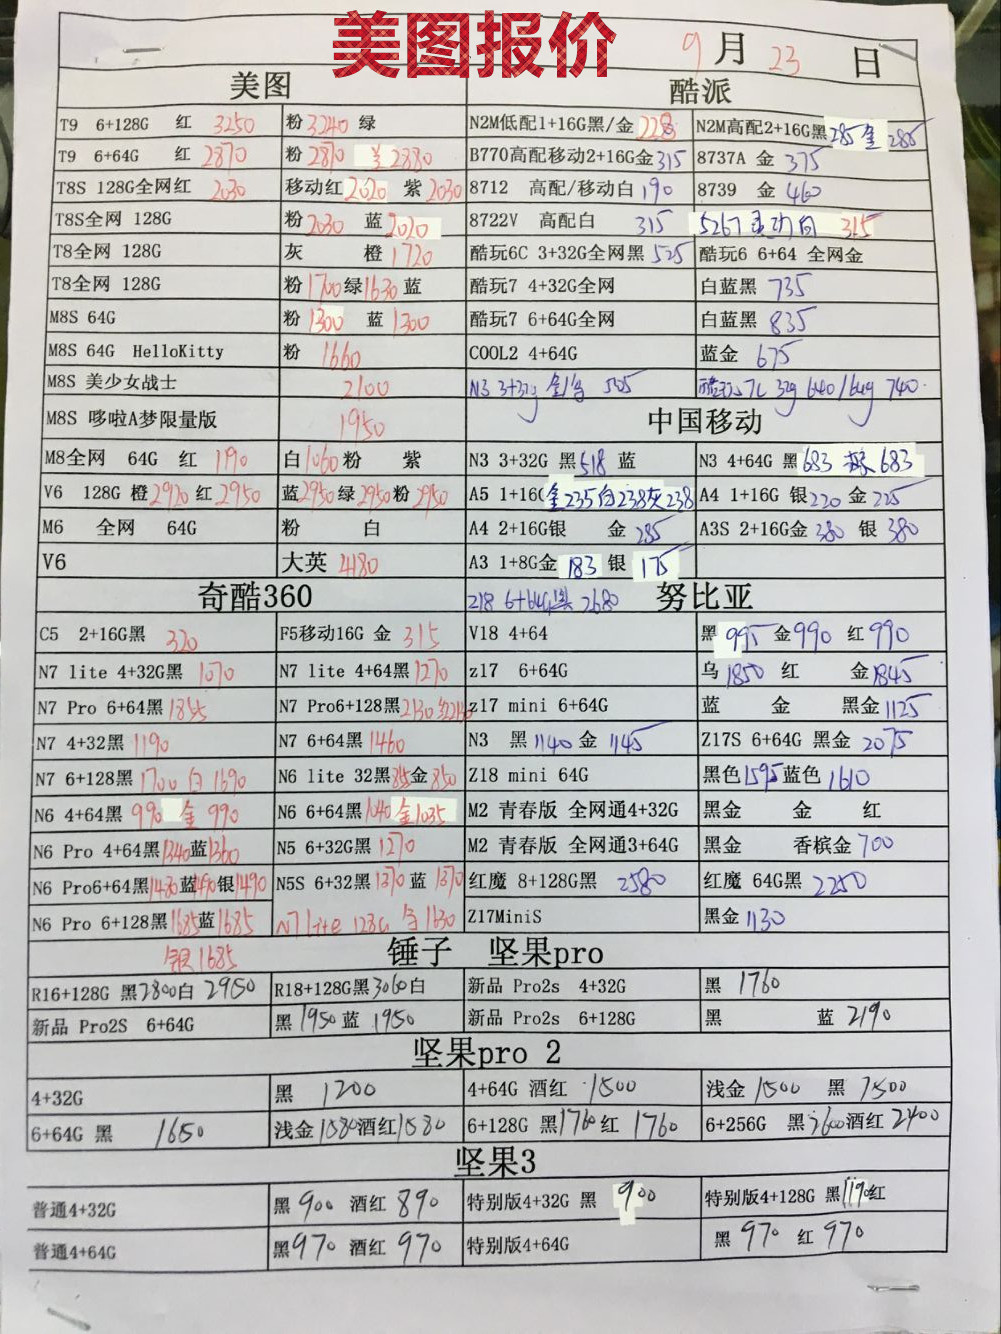 美图报价
9月23日
美图 酷派
T9 6+128G 红 3250 粉3240 绿 N2M低配1+16G黑/金228 N2M高配2+16G黑285 金285
T9 6+64G 红 2870 粉 2870 2880 B770高配移动2+16G金315 8737A 金 375
T8S 128G全网红 2030 移动红2020 紫2030 8712 高配/移动白190 8739 金 460
T8S全网 128G 粉2030 蓝2020 8722V 高配白 315 5267 移动白 315
T8全网 128G 灰 橙1720 酷玩6C 3+32G全网黑525 酷玩6 6+64 全网金
T8全网 128G 粉1700绿1630蓝 酷玩7 4+32G全网 白蓝黑 735
M8S 64G 粉1300 蓝1300 酷玩7 6+64G全网 白蓝黑 835
M8S 64G HelloKitty 粉 1660 COOL2 4+64G 蓝金 675
M8S 美少女战士 2100 N3 3+32g 505 7C 32g 640/64g 740
M8S 哆啦A梦限量版 1950 中国移动
M8全网 64G 红 1190 白1060粉 紫 N3 3+32G 黑518 蓝 N3 4+64G 黑683 683
V6 128G 橙2920红2950 蓝2950绿2950粉2950 A5 1+16G金235白238灰238 A4 1+16G 银220 金225
M6 全网 64G 粉 白 A4 2+16G银 金285 A3S 2+16G金380 银380
V6 大英4180 A3 1+8G金183 银175
奇酷360 Z18 6+64G黑 2680 努比亚
C5 2+16G黑 320 F5移动16G 金 315 V18 4+64 黑995金990 红990
N7 lite 4+32G黑 1070 N7 lite 4+64黑1270 z17 6+64G 乌1850 红 金1845
N7 Pro 6+64黑 N7 Pro6+128黑2130 z17 mini 6+64G 蓝 金 黑金1125
N7 4+32黑1190 N7 6+64黑1460 N3 黑1140金1145 Z17S 6+64G 黑金 2075
N7 6+128黑1700 白1690 N6 lite 32黑 金850 Z18 mini 64G 黑色1595蓝色1610
N6 4+64黑990 金990 N6 6+64黑1040金1035 M2 青春版 全网通4+32G 黑金 金 红
N6 Pro 4+64黑1340蓝1360 N5 6+32G黑1270 M2 青春版 全网通3+64G 黑金 香槟金700
N6 Pro6+64黑1480蓝1490银1490 N5S 6+32黑1370蓝1370 红魔 8+128G黑 2580 红魔 64G黑 2250
N6 Pro 6+128黑1685蓝1685 N7 lite 128G 1630 Z17MiniS 黑金1130
银1685 锤子 坚果pro
R16+128G 黑2800白2950 R18+128G黑3060白 新品 Pro2s 4+32G 黑 1760
新品 Pro2S 6+64G 黑1950蓝1950 新品 Pro2s 6+128G 黑 蓝 2190
坚果pro 2
4+32G 黑 1200 4+64G 酒红 1500 浅金1500 黑 1500
6+64G 黑 1650 浅金1580酒红1580 6+128G 黑1760红 1760 6+256G 黑2600酒红2400
坚果3
普通4+32G 黑900 酒红890 特别版4+32G 黑 900 特别版4+128G 黑1190红
普通4+64G 黑970 酒红970 特别版4+64G 黑970 红970